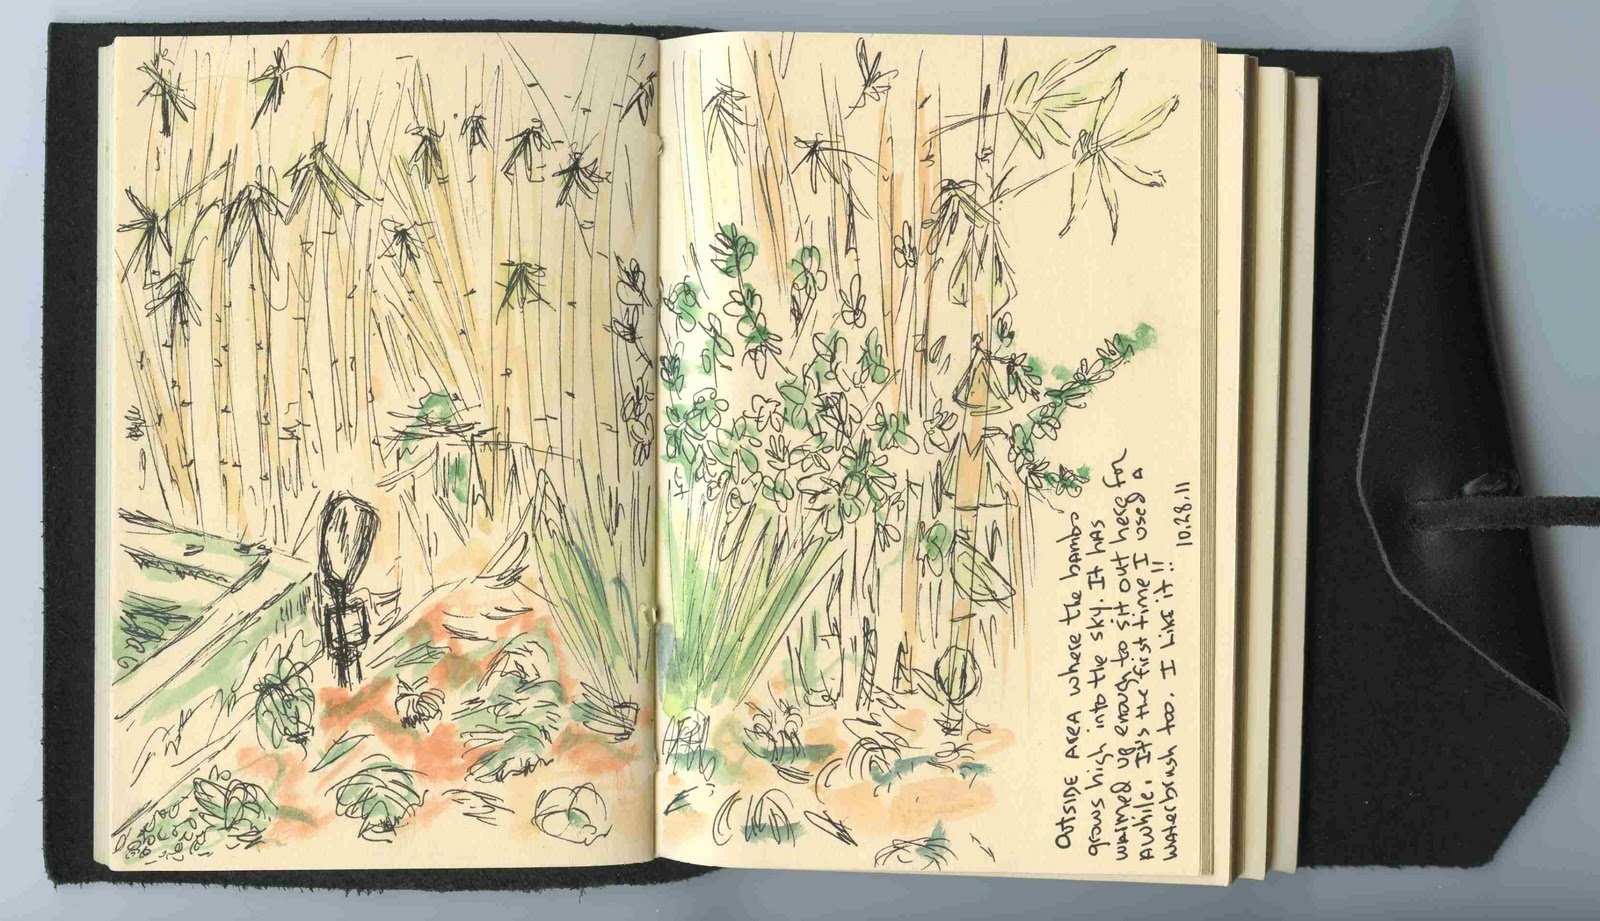 OUTSIDE AREA WHERE the bamboo
grows high into the sky. It has
warmed up enough to sit out here for
Awhile. It's the first time I used a
waterbrush too. I LIKE it!!
10.28.11